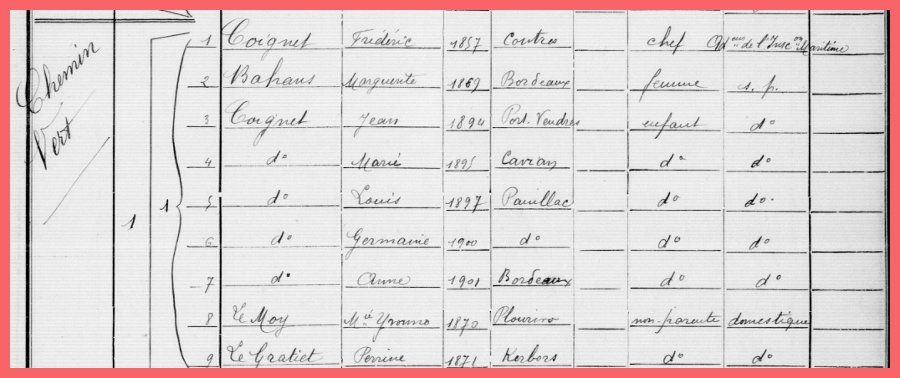 Chemin Vert
1 1
1 Coignet Frédéric 1857 Contres chef Ad de l'Insc on Maritime
2 Bahans Marguerite 1869 Bordeaux femme s. p.
3 Coignet Jean 1894 Port-Vendres enfant do
4 do Marie 1895 Cavian do do
5 do Louis 1897 Pauillac do do.
6 do Germaine 1900 do do do
7 do Anne 1901 Bordeaux do do
8 Le Moy Mie Yvonne 1870 Plourivo non-parente domestique
9 Le Gratiet Perrine 1871 Kerbors do do